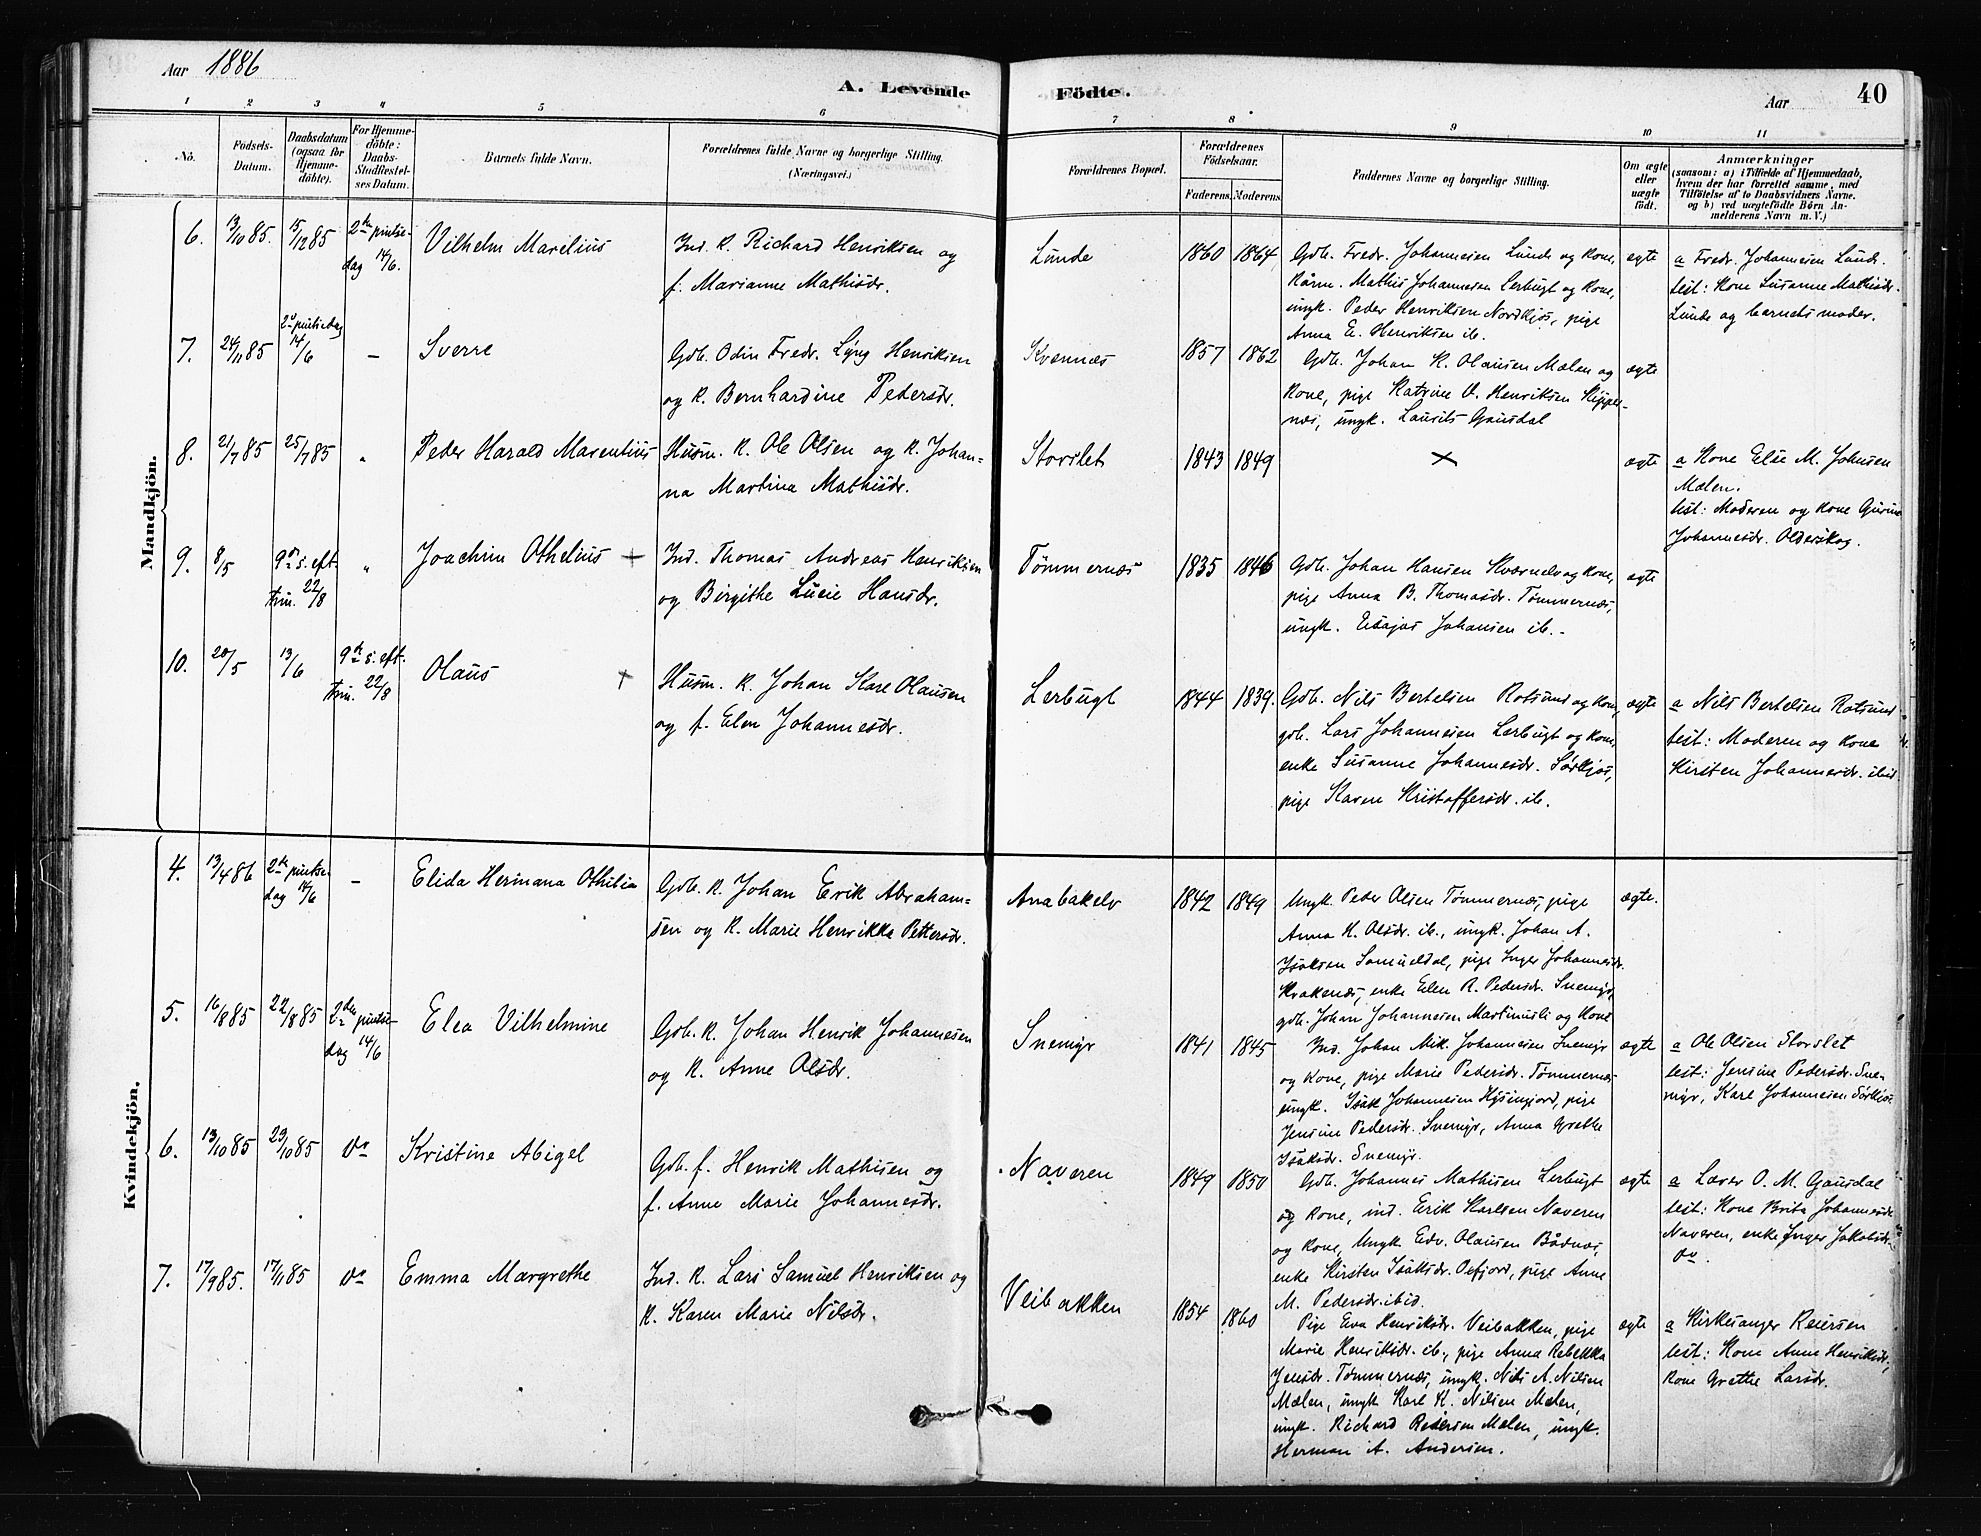 Aar 1886
A. Levende Födte.
Aar
40
1 2 3 4 5 6 7 8 9 10 11
No.
Födsels-Datum.
Daabsdatum (ogsaa for Hjemme-döbte).
For Hjemme-döbte: Daabs-Stadfæstel-ses Datum.
Barnets fulde Navn.
Forældrenes fulde Navne og borgerlige Stilling. (Næringsvei.)
Forældrenes Bopæl.
Forældrenes Födselsaar.
Faderens. Moderens.
Faddernes Navne og borgerlige Stilling.
Om ægte eller uægte födt.
Anmærkninger
(saasom: a) i Tilfælde af Hjemmedaab,
hvem der har forrettet samme, med
Tilföielse af to Daabsvidners Navne.
og b) ved uægtefödte Börn An-
melderens Navn m. V.)
Mandkjön.
6. 13/10 85. 15/12 85 2den pintse-
dag 14/6.
Vilhelm Marelius
Ind. K. Richard Henriksen og
f. Marianne Mathisdr.
Lunde
1860 1864
Gdb. Fredr. Johannesen Lunde og kone,
Kårm. Mathis Johannesen Lerbugt og kone,
ungk. Peder Henriksen Nordkjos, pige
Anna E. Henriksen ib.
ægte
a Fredr. Johannesen Lunde.
test: Kone Susanne Mathisdr.
Lunde og barnets moder.
7. 24/11 85 2d pintsedag
14/6 –
Sverre
Gdb. Odin Fredr. Lyng Henriksen
og K. Bernhardine Pedersdr.
Kvennæs
1857 1862
Gdb. Johan K. Olausen Mælen og
kone, pige Katrine V. Henriksen Kipper-
næs, ungk. Laurits Gausdal
ægte
8. 21/7 85 25/7 85 "
Peder Harald Marentius
Husm. K. Ole Olsen og K. Johan-
na Martina Mathisdr.
Storslet
1843 1849
×
ægte
a Kone Else M. Johnsen
Mælen.
test: Moderen og kone Gurine
Johannesdr. Olderskog.
9. 8/5 9de s. eft.
trin. 22/8 "
Joachim Othelius +
Ind. Thomas Andreas Henriksen
og Birgithe Lucie Hansdr.
Tømmernæs
1835 1846
Gdb. Johan Hansen Kværnelv og kone,
pige Anna B. Thomasdr. Tømmernæs,
ungk. Esajas Johansen ib. -
ægte
10. 20/5 13/6 9de s. eft.
trin. 22/8
Olaus +
Husm. K. Johan Kare Olausen
og f. Elen Johannesdr.
Lerbugt
1844 1839.
Gdb. Nils Bertelsen Rotsund og kone,
gdb. Lars Johannesen Lerbugt og kone,
enke Susanne Johannesdr. Sørkjos,
pige Karen Kristoffersdr. ib.
ægte
a Nils Bertelsen Rotsund
test: Moderen og kone
Kirsten Johannesdr. ibid
Kvindekjön.
4. 13/4 86 2den pintse-
dag 14/6 –
Elida Hermana Othilia
Gdb. K. Johan Erik Abraham-
sen og K. Marie Henrikka Pettersdr.
Anabakelv
1842 1849
Ungk. Peder Olsen Tømmernæs, pige
Anna K. Olsdr. ib., ungk. Johan A.
Isaksen Samueldal, pige Inger Johannesdr.
Krakenæs, enke Elen R. Pedersdr. Snemyr,
gdb. Johan Johannesen Martinusli og kone
ægte.
5. 16/8 85 22/8 85 2den pintse-
dag 14/6
Elea Vilhelmine
Gdb. K. Johan Henrik Johannesen
og K. Anne Olsdr.
Snemyr
1841 1845
Ind. Johan Mik. Johannesen Snemyr
og kone, pige Marie Pedersdr. Tømmernæs
ungk. Isak Johannesen Hysingjord, pige
Jensine Pedersdr. Snemyr, Anna Grethe
Isaksdr. Snemyr.
ægte
a Ole Olsen Storslet
test: Jensine Pedersdr. Sne-
myr, Kare Johannesen Sørkjos
6. 13/10 85 23/10 85 do
Kristine Abigel
Gdb. f. Henrik Mathisen og
f. Anne Marie Johannesdr.
Naveren
1849 1850
Gdb. Johannes Mathisen Lerbugt
og kone, ind. Erik Karlsen Naveren
og kone, Ungk. Edv. Olausen Bådnæs,
enke Kirsten Isaksdr. Oxfjord, pige Anne
M. Pedersdr. ibid.
ægte
a Lærer O. M. Gausdal
test: Kone Brita Johannesdr.
Naveren, enke Inger Jakobsdr.
do.
7. 17/9 85. 17/11 85 do
Emma Margrethe
Ind. K. Lars Samuel Henriksen og
K. Karen Marie Nilsdr.
Veibakken
1854 1860
Pige Eva Henriksdr. Veibakken, pige
Marie Henriksdr. ib., pige Anna Rebekka
Jensdr. Tømmernæs, ungk. Nils A. Nilsen
Mælen, ungk Karl K. Nilsen Mælen,
ungk. Richard Reiersen Mælen, ungk.
Herman A. Andersen.
ægte
a Kirkesanger Reiersen
test: Kone Anne Henriksdr.,
kone Grethe Larsdr.